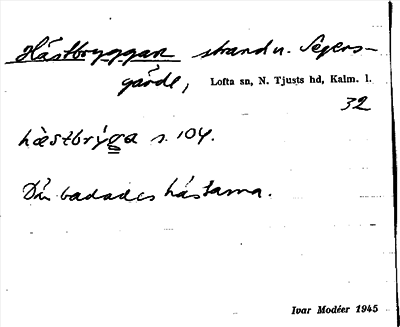 Hästbryggan strand u. Segers-
gärde, Lofta sn, N. Tjusts hd, Kalm. l.
32
hæstbrýga s. 104.
Där badades hästarna.
Ivar Modéer 1945